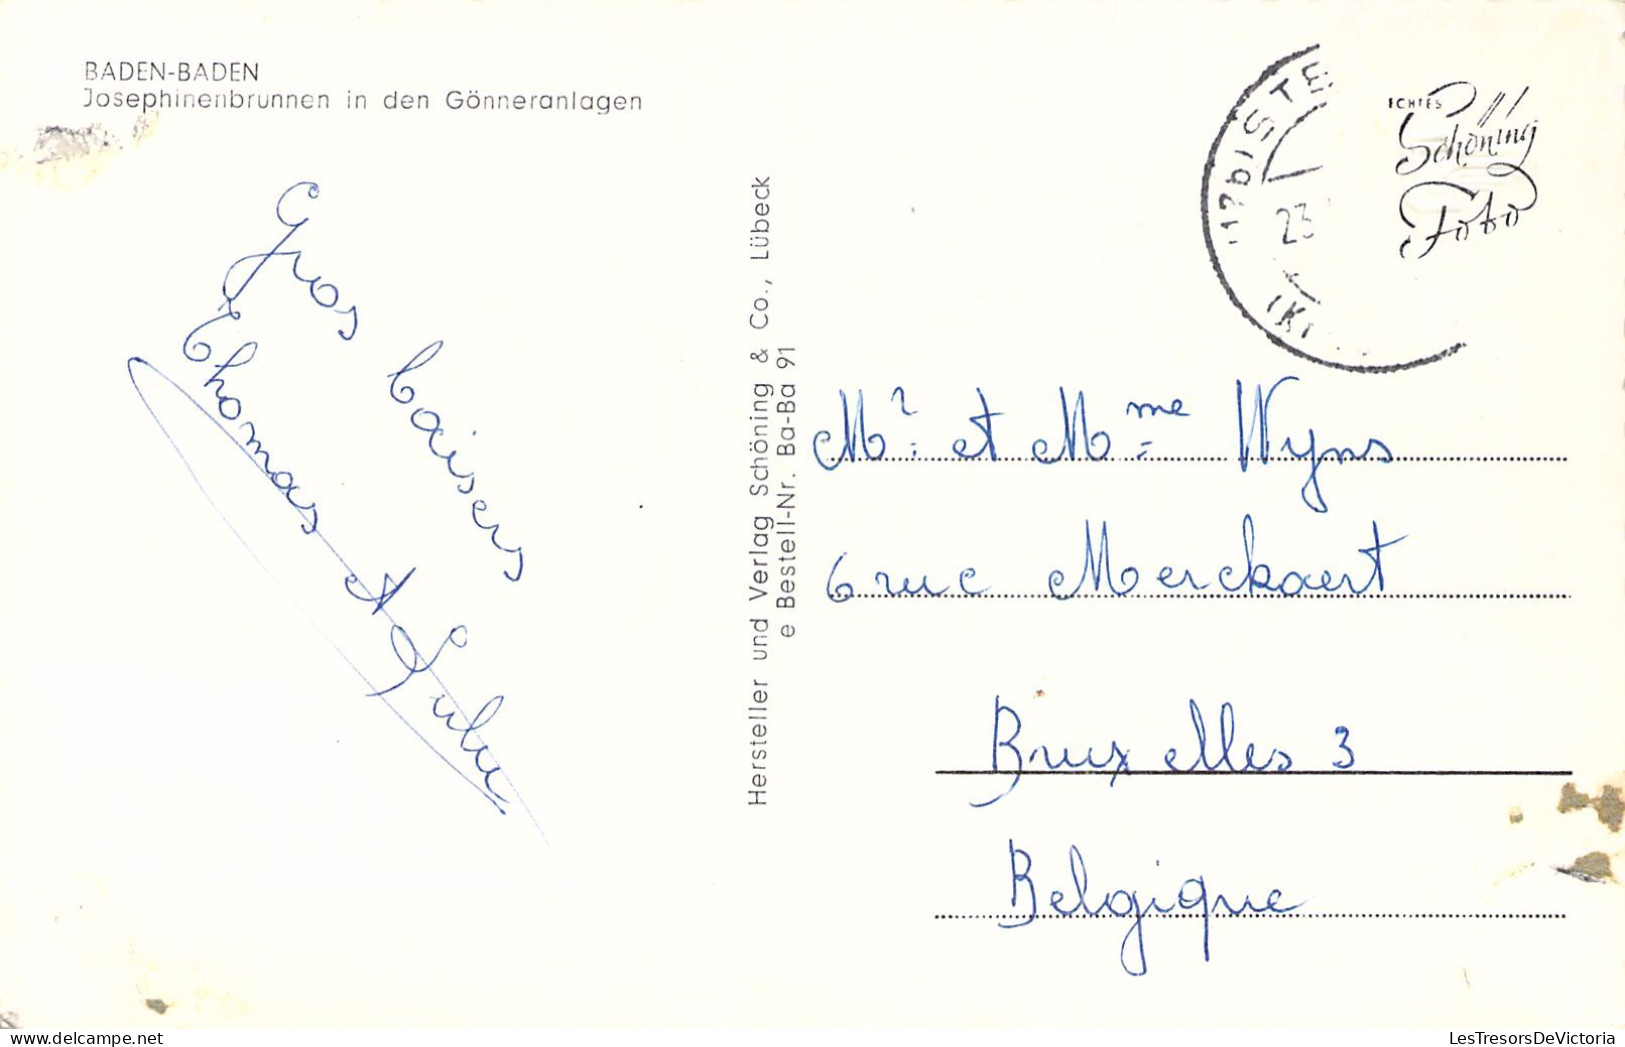 BADEN-BADEN
Josephinenbrunnen in den Gönneranlagen
Gros baisers
Thomas et
Hersteller und Verlag Schöning & Co., Lübeck
e Bestell-Nr. Ba-Ba 91
23
ECHTES
Schöning
Foto
Mr. et Mme Wyns
6 rue Merckaert
Bruxelles 3
Belgique
LesTresorsDeVictoria.com